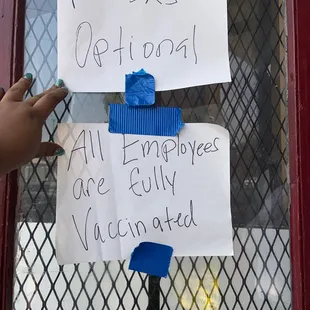 Optional
All Employees
are fully
Vaccinated